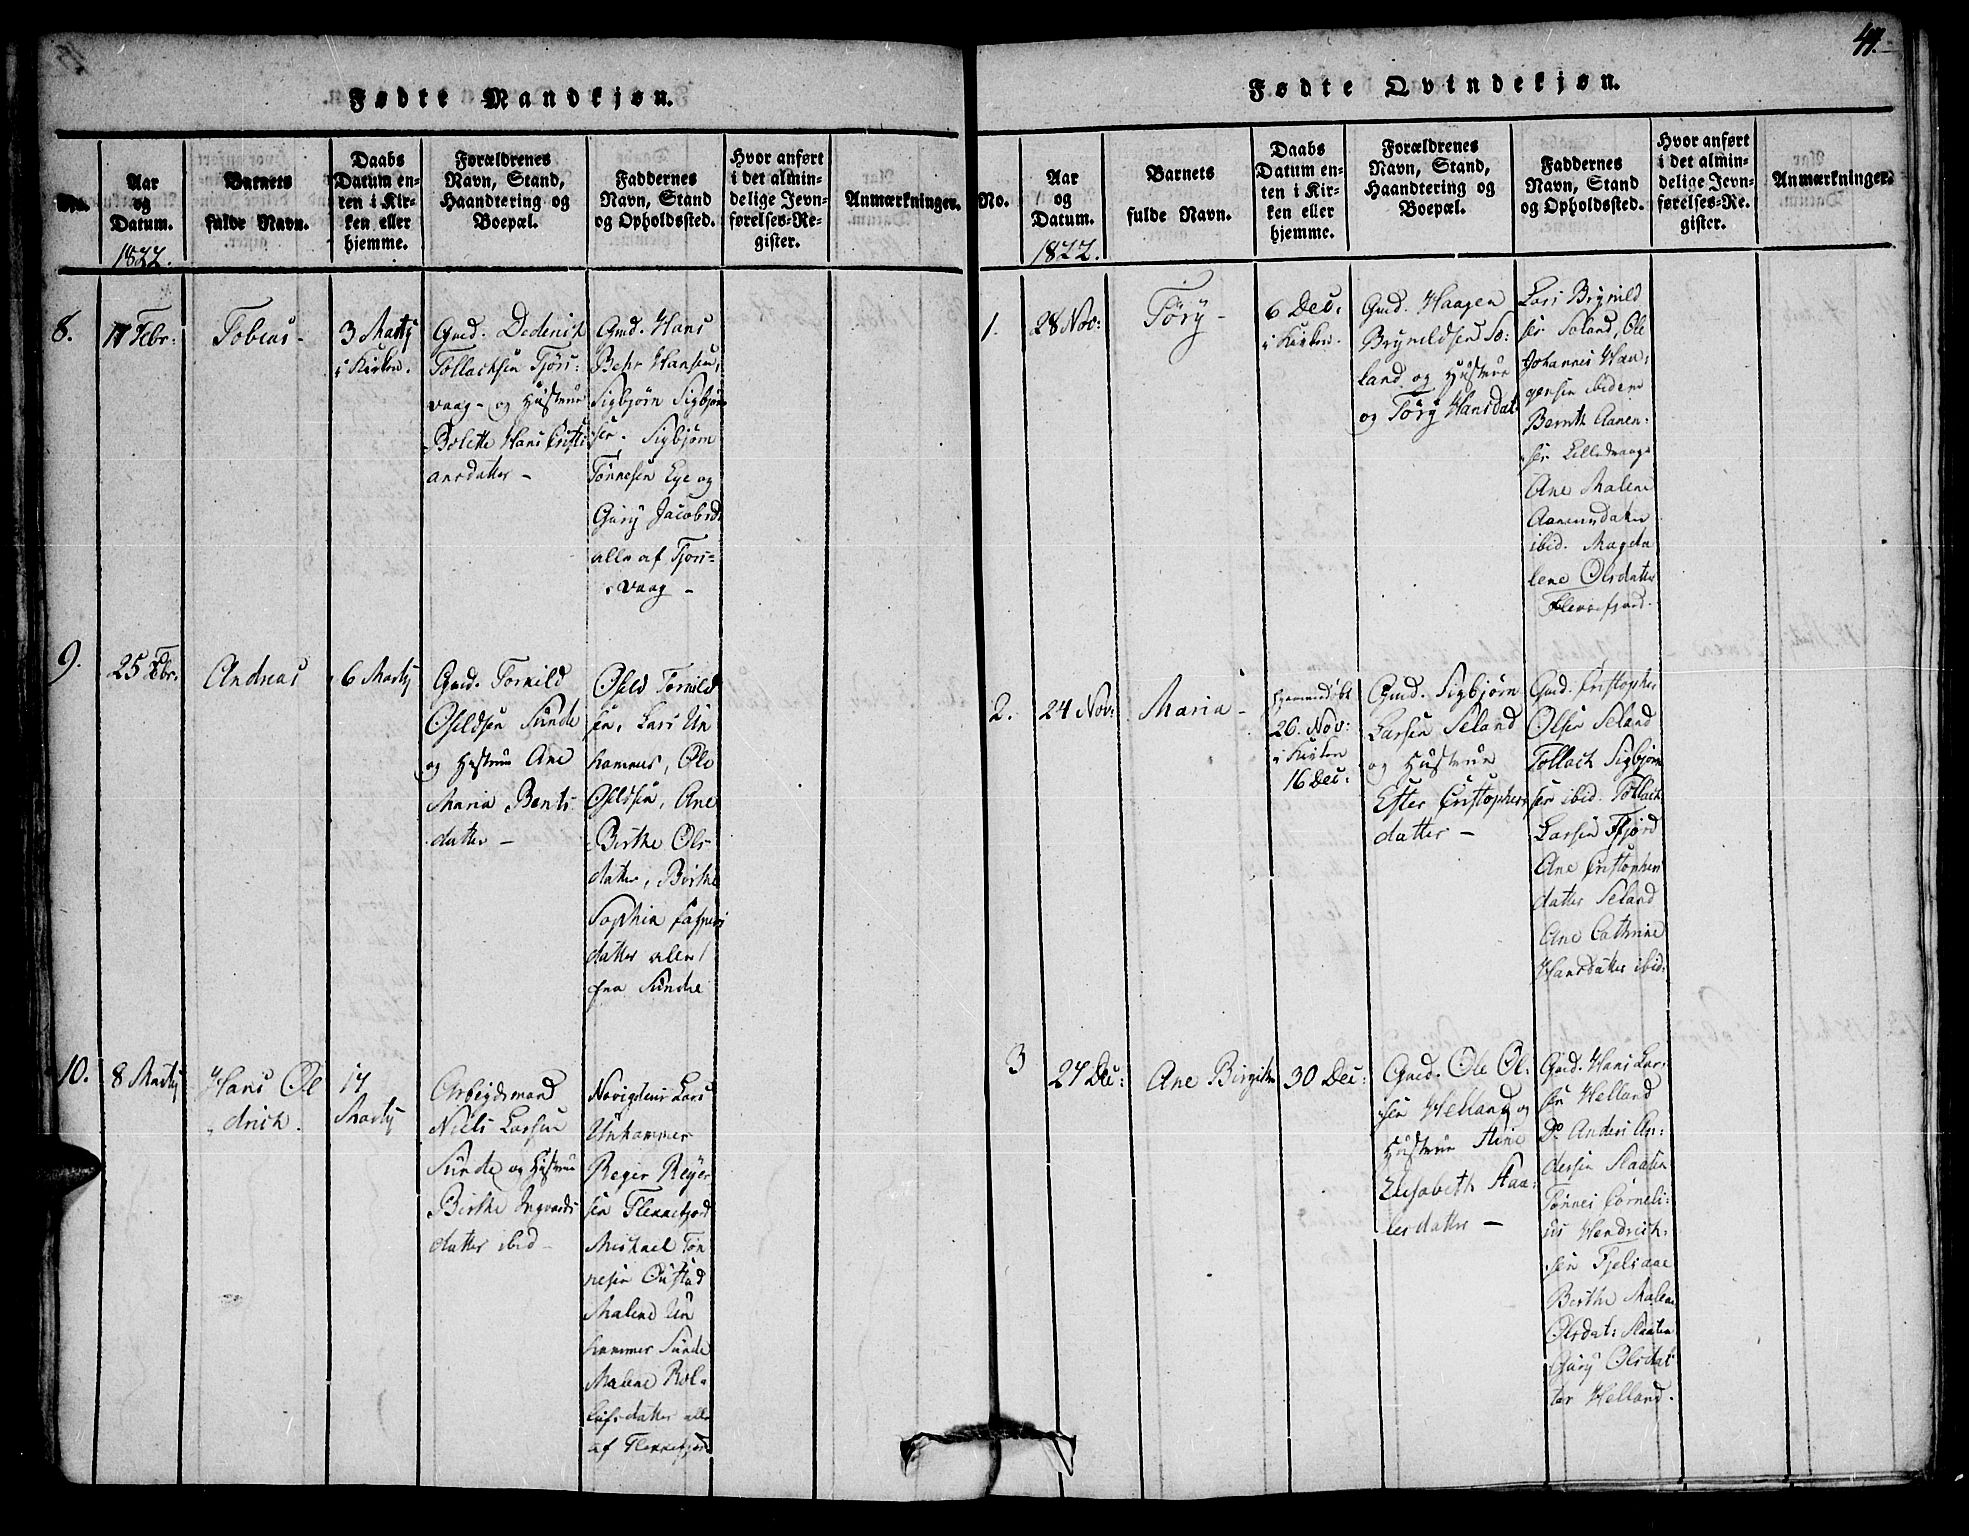 Fødte Mandkjøn.
No.
Aar
og
Datum.
1822.
Barnets
fulde Navn.
Daabs
Datum en-
ten i Kir-
ken eller
hjemme.
Forældrenes
Navn, Stand,
Haandtering og
Boepæl.
Faddernes
Navn, Stand
og Opholdssted.
Hvor anført
i det almin-
delige Jevn-
førelses-Re-
gister.
Anmærkninger.
8.
17 Febr:
Tobias -
3 Martj
i Kirken.
Gmd. Dederich
Tollachsen Tjørs-
vaag - og Hustrue
Bolette Hans Cristi
ansdatter -
Gmd. Hans
Behr Hansen,
Sigbjørn Sigbjørn
sen. Sigbjørn
Tønnesen Eye og
Gurÿ Jacobsd.
alle af Tjørs-
vaag -
9.
25 Febr.
Andreas
6 Martj
Gmd. Tornild
Osuldsen Sunde
og Hustrue Ane
Maria Bents
datter -
Osuld Tornild
sen, Lars Un
hammer, Ole
Osuldsen, Ane
Birthe Ols-
datter, Birthe
Sophia Caspers
datter alle
fra Sunde
10.
8 Martj
Hans Ol
drich.
17
Martj
Arbeydsmand
Niels Larsen
Sunde og Hustrue
Birthe Ingvards
datter ibid -
Lars
Unhammer
Reyer Reyer
sen Flekkefjord
Michael Tøn
nesen Oustad
Malene Un
hammer Sunde
Malene Rol-
lufsdatter alle
af Flekkefjord
Fødte Qvindekjøn.
No.
Aar
og
Datum.
1822.
Barnets
fulde Navn.
Daabs
Datum en-
ten i Kir-
ken eller
hjemme.
Forældrenes
Navn, Stand,
Haandtering og
Boepæl.
Faddernes
Navn, Stand
og Opholdssted.
Hvor anført
i det almin-
delige Jevn-
førelses-Re-
gister.
Anmærkninger.
1.
28 Nov:
Tørÿ -
6 Dec:
i Kirken.
Gmd. Haagen
Brynildsen Se:
land og Hustrue
og Tørÿ Hansdat:
Lars Brynild
sen Seland, Ole
Johannes Haa-
gensen ibidem
Bernth Aanen-
sen Lilledraage
Ane Malene
Aanensdatter
ibid. Magda
lene Olsdatter
Flekkefjord.
2.
24 Nov:
Maria -
hjemmedøbt
26. Nov:
i Kirken
16 Dec:
Gmd. Sigbjørn
Larsen Seland
og Hustrue
Ester Cristophers
datter -
Gmd. Cristopher
Olsen Seland
Tollach Sigbjørn
sen ibid. Tollach
Larsen Fjord
Ane Cristophers
datter Seland
Ane Cathrine
Hansdatter ibid:
3
27 Dec:
Ane Birgithe
30 Dec:
Gmd. Ole Ol:
sen Helland og
Hustrue Stine
Elisabeth Staa:
lesdatter -
Gmd. Hans Lar:
sen Helland
Do Anders An:
dersen Slaaten
Tønnes Corneli:
us Hendrich:
sen Fjelsaae
Berthe Malene
Olsdat: Slaaten
Gurÿ Olsdat
ter Helland.